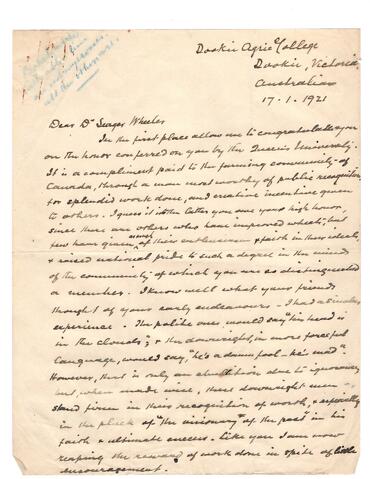 Dookie Agric College
Dookie, Victoria
Australia
17.1.1921
Dear Dr Seager Wheeler
In the first place allow me to congratulate you
on the honor conferred on you by the Queens University.
It is a compliment paid to the farming community of
Canada, through a man most worthy of public recognition
for splendid work done, and creative incentive given
to others. I guess it is the latter you owe your high honor,
since there are others who have improved wheats; but
few have given of their enthusiasm & faith in their ideals,
& raised national pride to such a degree in the minds
of the community of which you are so distinguished
a member. I know well what your friends
thought of your early endeavours - I had a similar
experience. The polite ones would say "his head is
in the clouds; & the downright, in more forceful
language, would say, "he's a damn fool - he's mad".
However, that is only an due to ignorance
but when made wise, these downright men
stand firm in their recognition of worth, & especially
in the pluck of "the visionary of the past" in his
faith & ultimate success. Like you I am now
reaping the reward of work done in spite of little
encouragement.